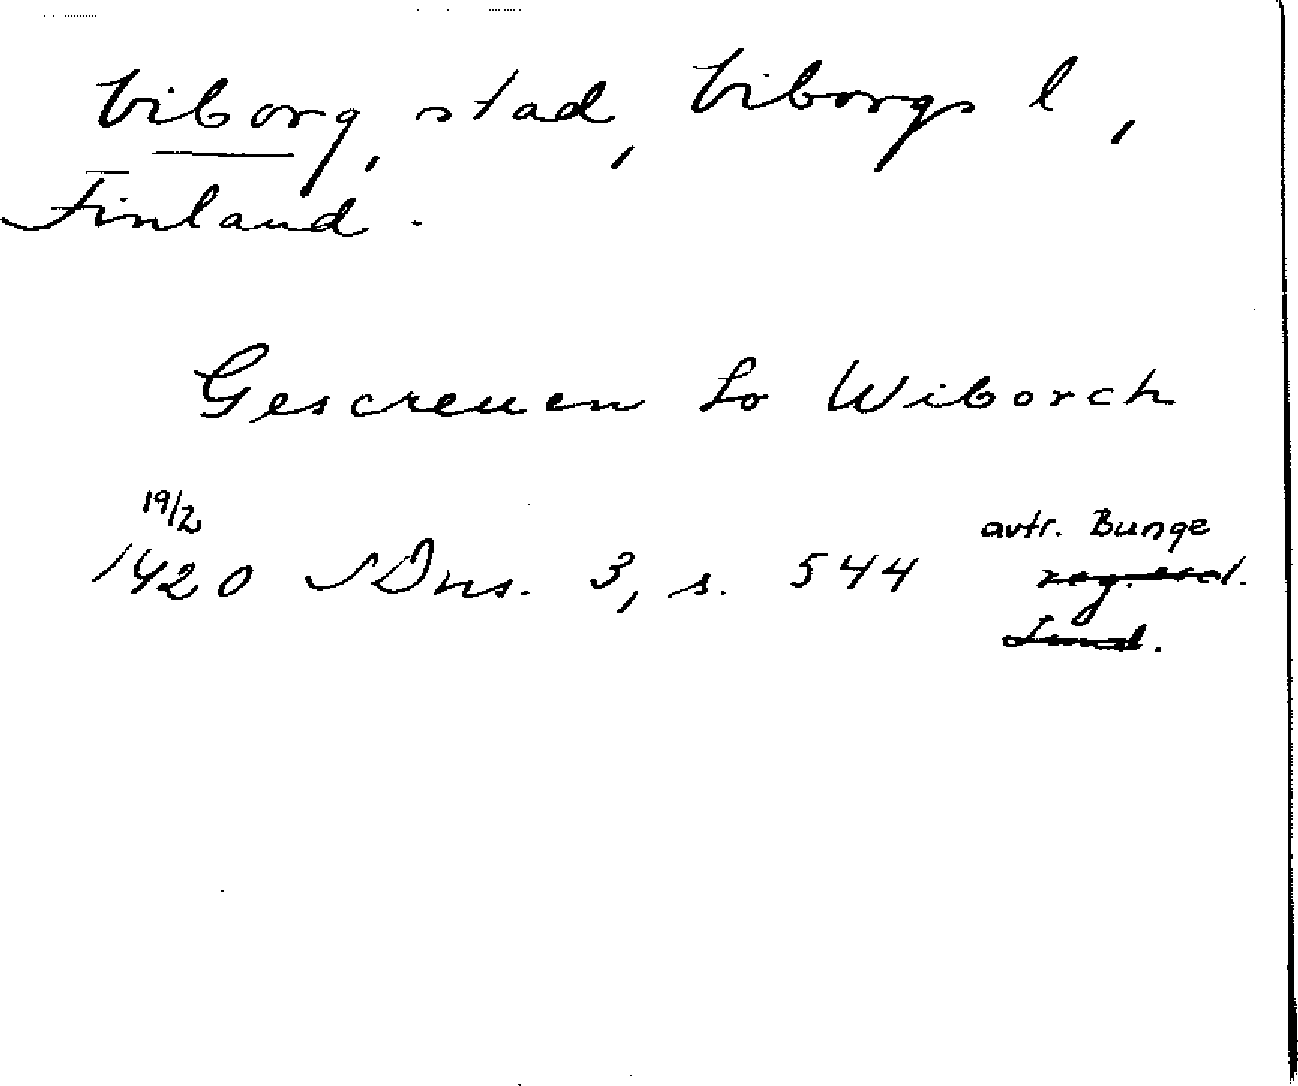 Viborg, stad, Viborgs l,
Finland.
Gescreuen to Wiborch
19/2
1420 SDns. 3, s. 544
avtr. Bunge